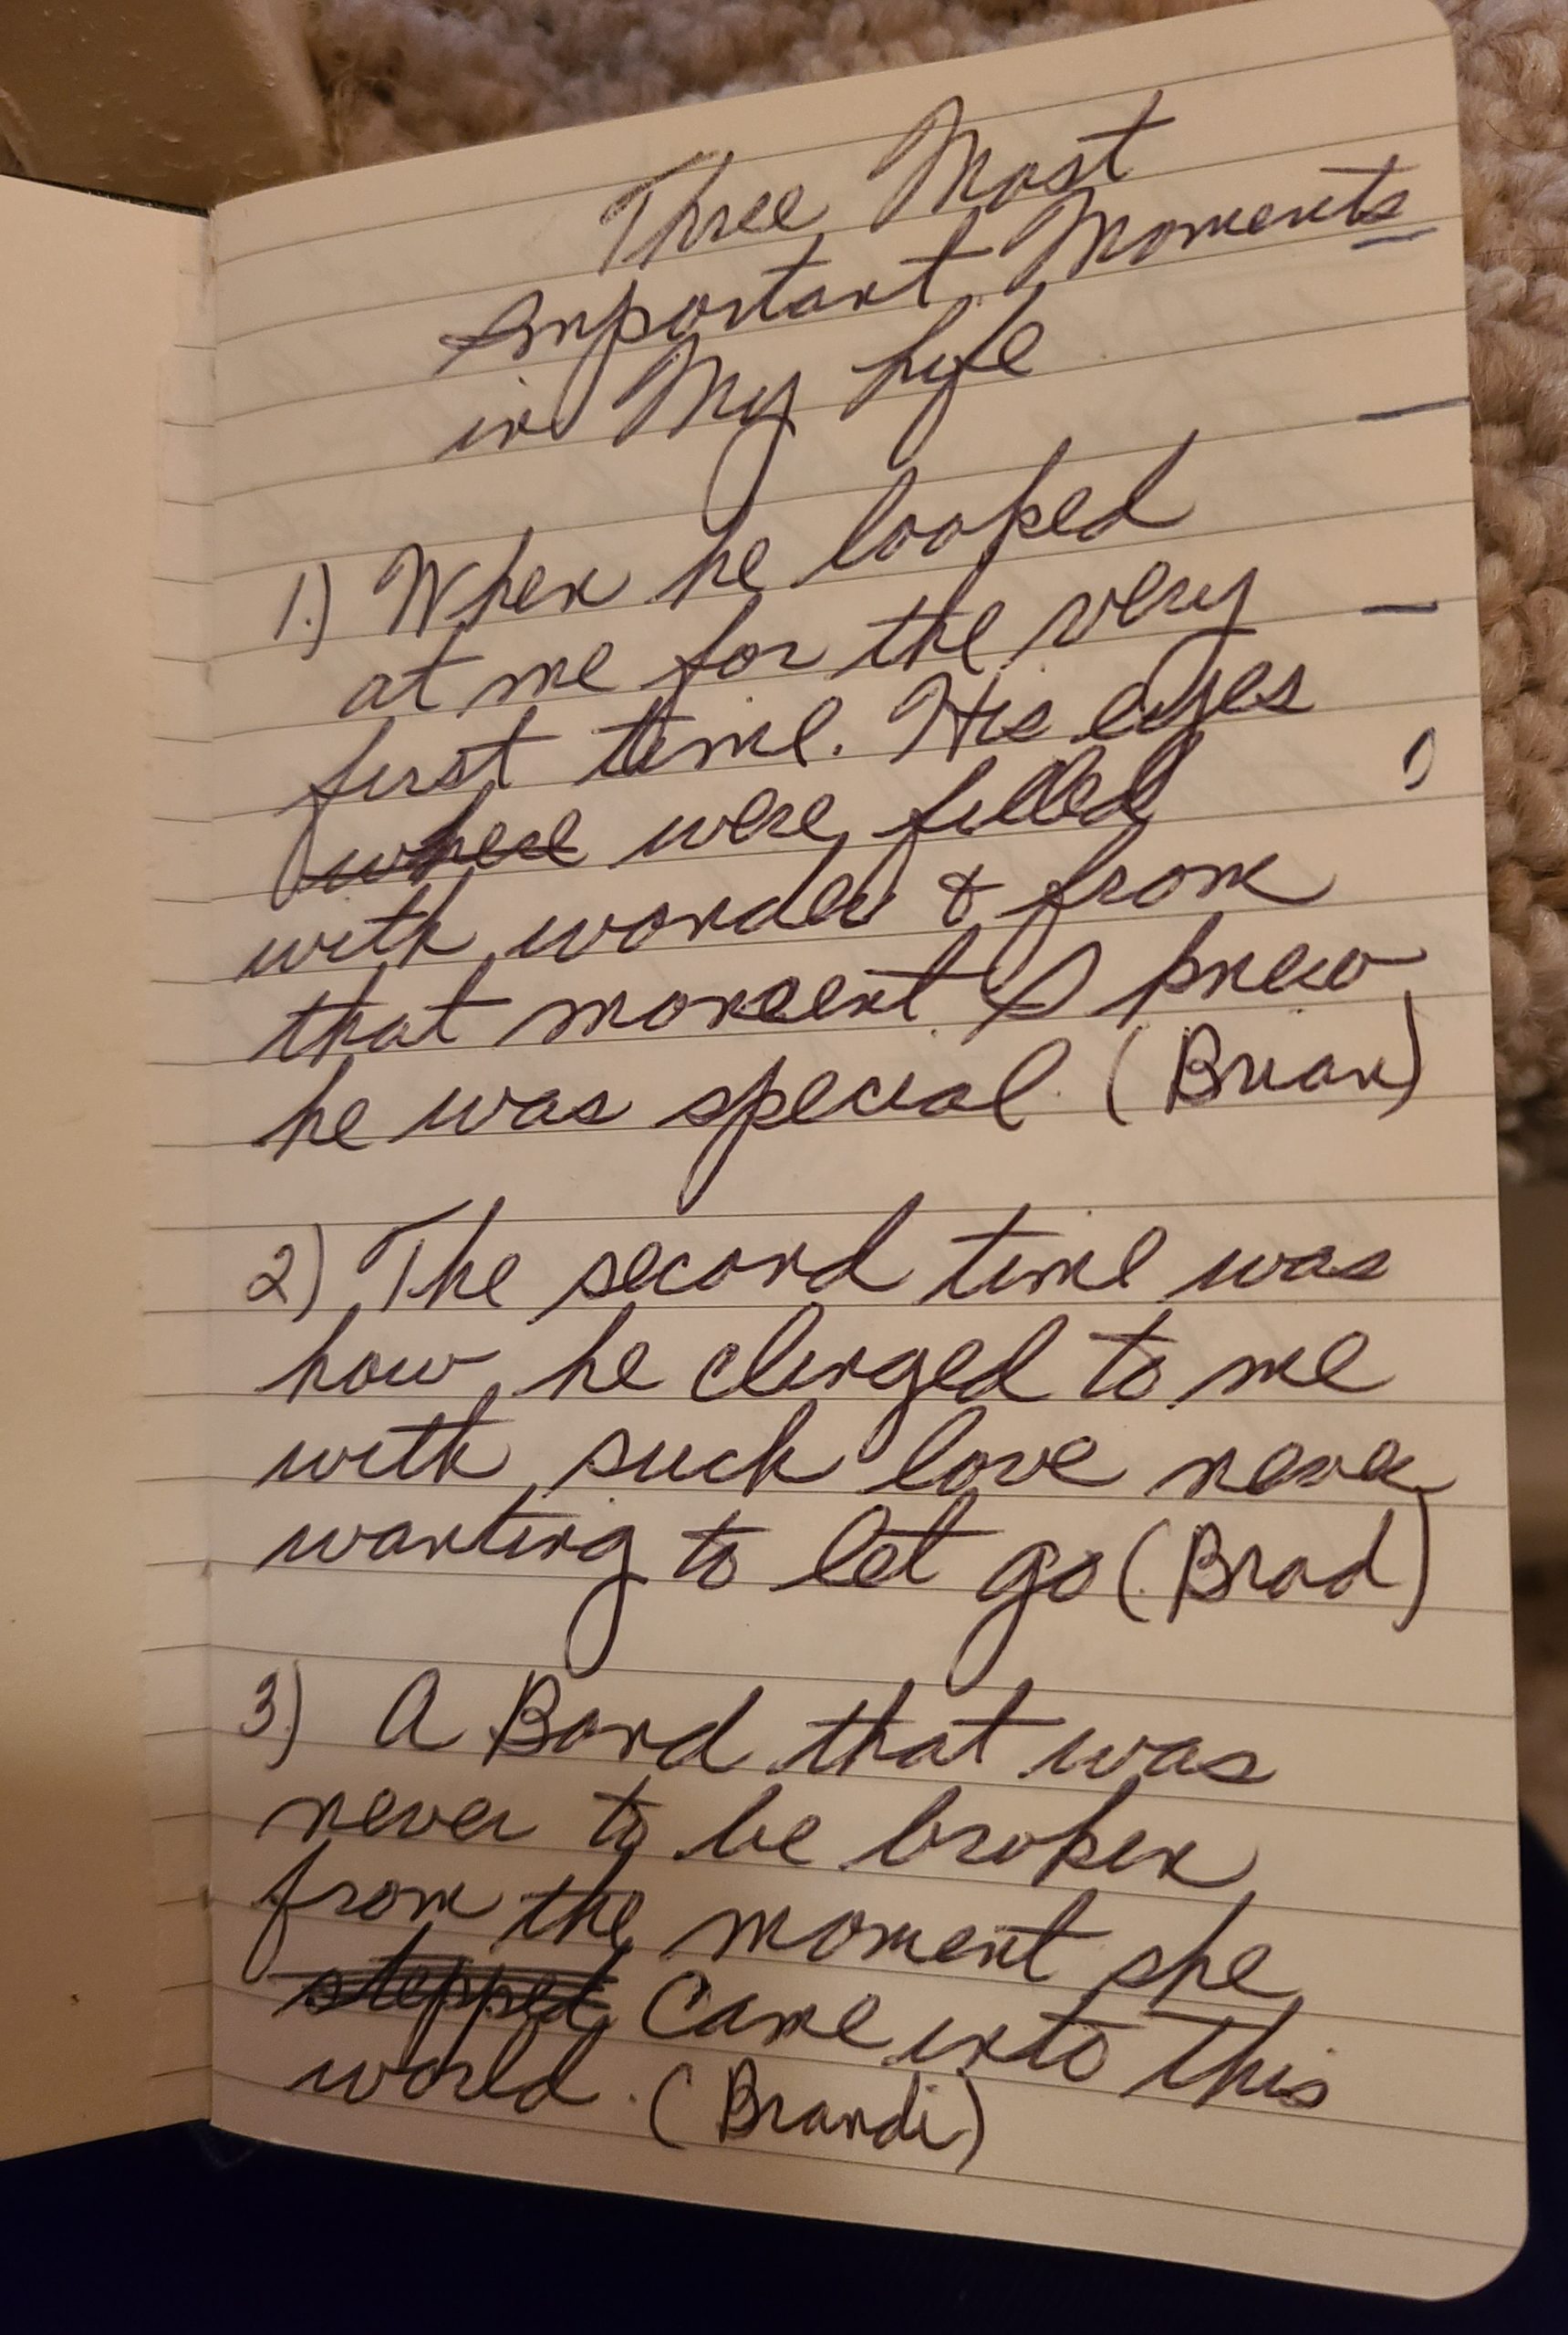 Three Most
Important Moments
in My Life
1.) When he looked
at me for the very
first time. His eyes
where were filled
with wonder & from
that moment I knew
he was special. (Brian)
2) The second time was
how he clinged to me
with such love never
wanting to let go (Brad)
3) A Bond that was
never to be broken
from the moment she
stepped Came into this
world. (Brandi)